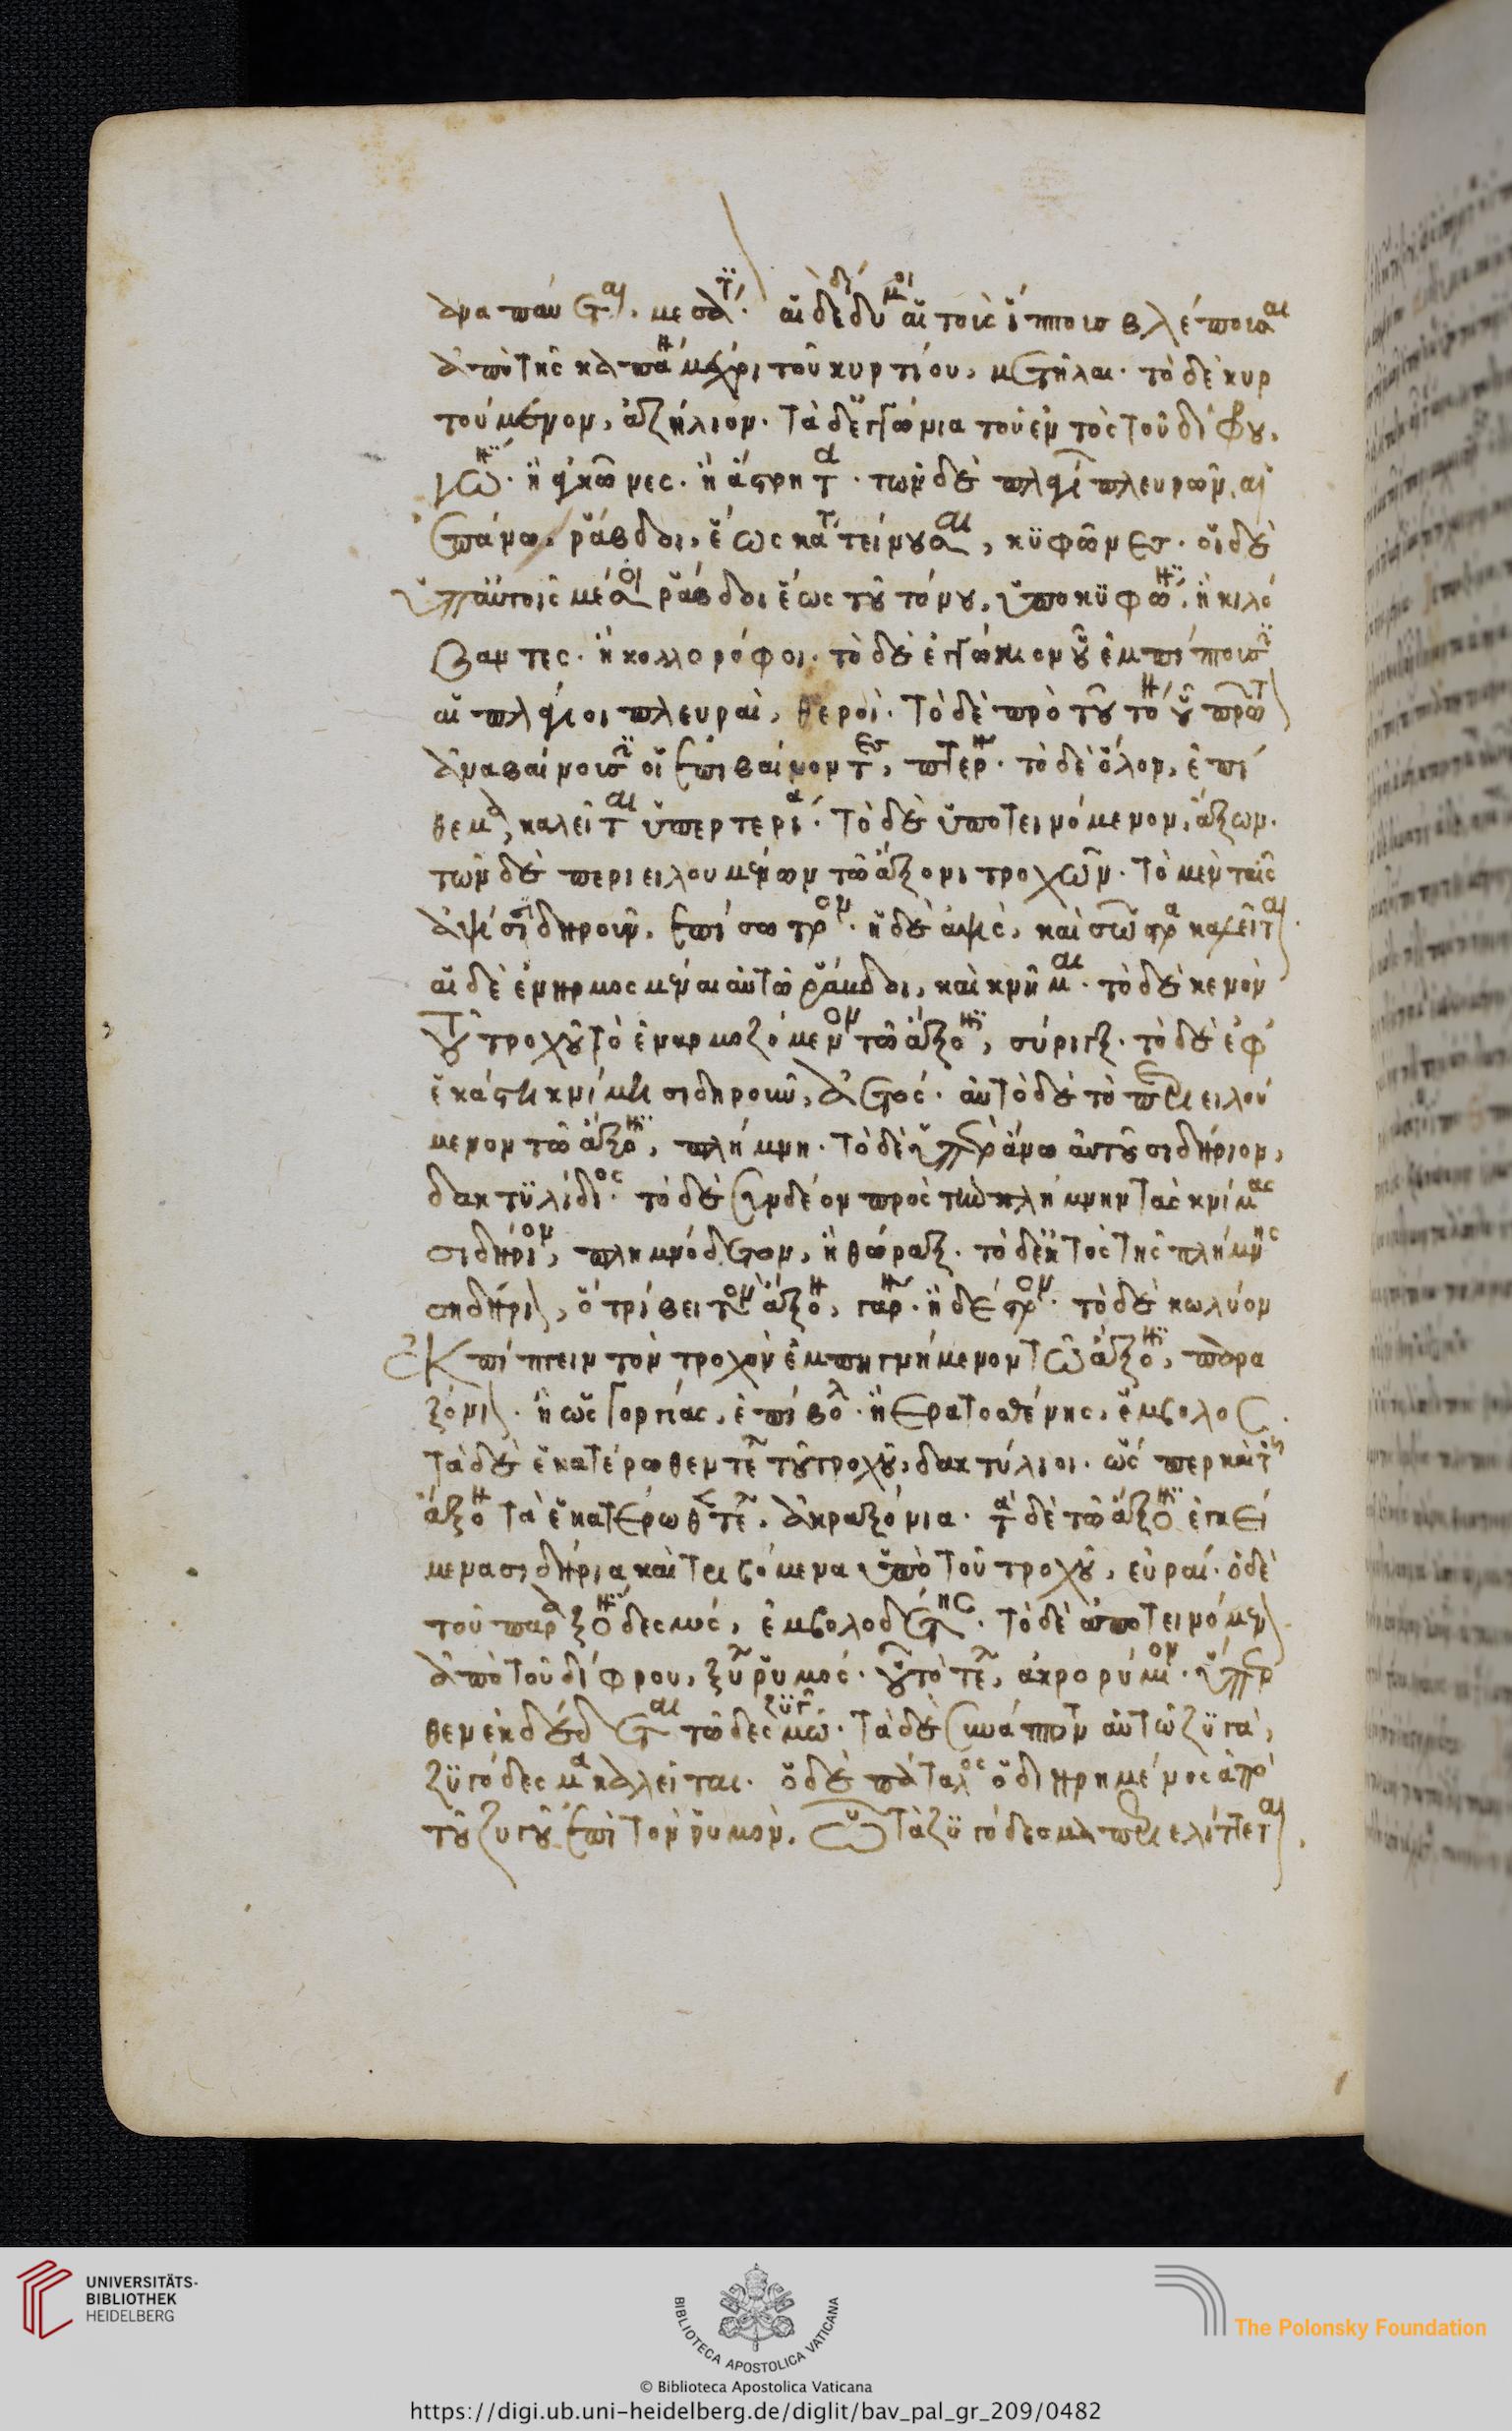 ἀναπαύεται. μεσάτ. αἱ δὲ δίδυμοι αἱ τοῖς ἵπποις βλέπουσαι
ἀπὸ τῆς κάπης μέχρι τοῦ κυρτίου,
τὸ δὲ κυρ
τούμενον, ἀξήλιον. τὰ δὲ ἐγγώνια τοῦ ἐντὸς τοῦ δίφρου,
τῶν δὲ πλαγίων πλευρῶν, αἱ
ἐπάνω ῥάβδοι, ἕως κατατείνουσαι, κυφῶνες. οἱ δὲ
ὑπ' αὐτοῖς μέσοι ῥάβδοι ἕως τοῦ τόνου, ὑποκύφωνες, ἢ κιλλί
βαντες. ἢ κολλορόφοι. τὸ δὲ ἐγγώνιον οὗ ἐμπίπτουσιν
αἱ πλάγιοι πλευραὶ, θεροί. τὸ δὲ πρὸ τούτου
ἀναβαίνουσιν οἱ ἐπιβαίνοντες, πτέρνη. τὸ δὲ ὅλον, ἐπί
θεμα, καλεῖται ὑπερτερία. τὸ δὲ ὑποτεινόμενον, ἄξων.
τῶν δὲ περιειλουμένων τῷ ἄξονι τροχῶν. τὸ μὲν ταῖς
ἁψῖσι σιδηροῦν, ἐπίσωτρον. ἡ δὲ ἁψὶς, καὶ σῶτρα καλεῖται.
αἱ δὲ ἐνηρμοσμέναι αὐτῷ ῥάβδοι, καὶ κνῆμαι. τὸ δὲ κενὸν
τοῦ τροχοῦ τὸ ἐναρμοζόμενον τῷ ἄξονι, σύριγξ. τὸ δὲ ἐφ'
ἑκάστῃ κνήμῃ σιδηροῦν, ἀετός. αὐτὸ δὲ τὸ περιειλού
μενον τῷ ἄξονι, πλήμνη. τὸ δὲ ὑπεράνω αὐτοῦ σιδήριον,
δακτυλίδιος. τὸ δὲ συνδέον πρὸς τὴν πλήμνην τὰς κνήμας
σιδήριον, πλημνόδετον, ἢ θώραξ. τὸ δὲ ἐντὸς τῆς πλήμνης
σηδήριον, ὃ τρίβει τὸν ἄξονα, γάρνον. ἢ δέστρον. τὸ δὲ κωλύον
ἐκπίπτειν τὸν τροχὸν ἐμπηγνήμενον τῷ ἄξονι, παρα
ξόνιον. ἢ ὡς Γοργίας, ἐπίβολον. ἢ Ερατοσθένης, ἔμβολος.
τὰ δὲ ἑκατέρωθεν τέλη τοῦ τροχοῦ, δακτύλιοι. ὥσπερ καὶ τοῦ
ἄξονος τὰ ἑκατέρωθεν τέλη, ἀκραξόνια. τὰ δὲ τῷ ἄξονι ἐγκεί
μενα σιδήρια καὶ τριβόμενα ὑπὸ τοῦ τροχοῦ, εὐραί. ὁ δὲ
τοῦ παραξονίου δεσμός, ἐμβολοδέτης. τὸ δὲ ἀποτεινόμενον
ἀπὸ τοῦ δίφρου, ξύλον ῥυμός. οὗ τὸ τέλος, ἀκρορύμιον.
θεν ἐκδέδεται τῷ δεσμῷ. τὰ δὲ συνάπτοντα αὐτῷ ζυγὰ,
ζυγόδεσμα καλεῖται. ὁ δὲ πάταλος ὁ διῃρημένος ἀπὸ
τοῦ ζυγοῦ ἐπὶ τὸν ῥυμὸν. ᾧ τὰ ζυγόδεσμα περιελίττεται.
UNIVERSITÄTS-
BIBLIOTHEK
HEIDELBERG
BIBLIOTECA APOSTOLICA VATICANA
The Polonsky Foundation
© Biblioteca Apostolica Vaticana
https://digi.ub.uni-heidelberg.de/diglit/bav_pal_gr_209/0482